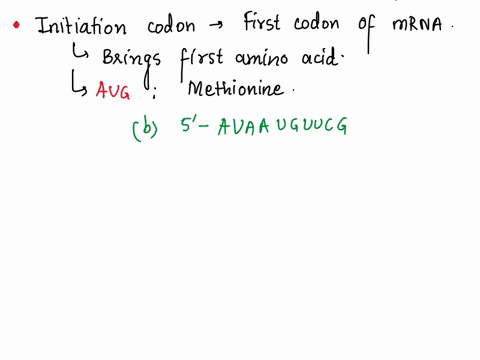 • Initiation codon → First codon of mRNA.
↳ Brings first amino acid.
↳ AUG : Methionine.
(b) 5'- AUAAUGUUCG